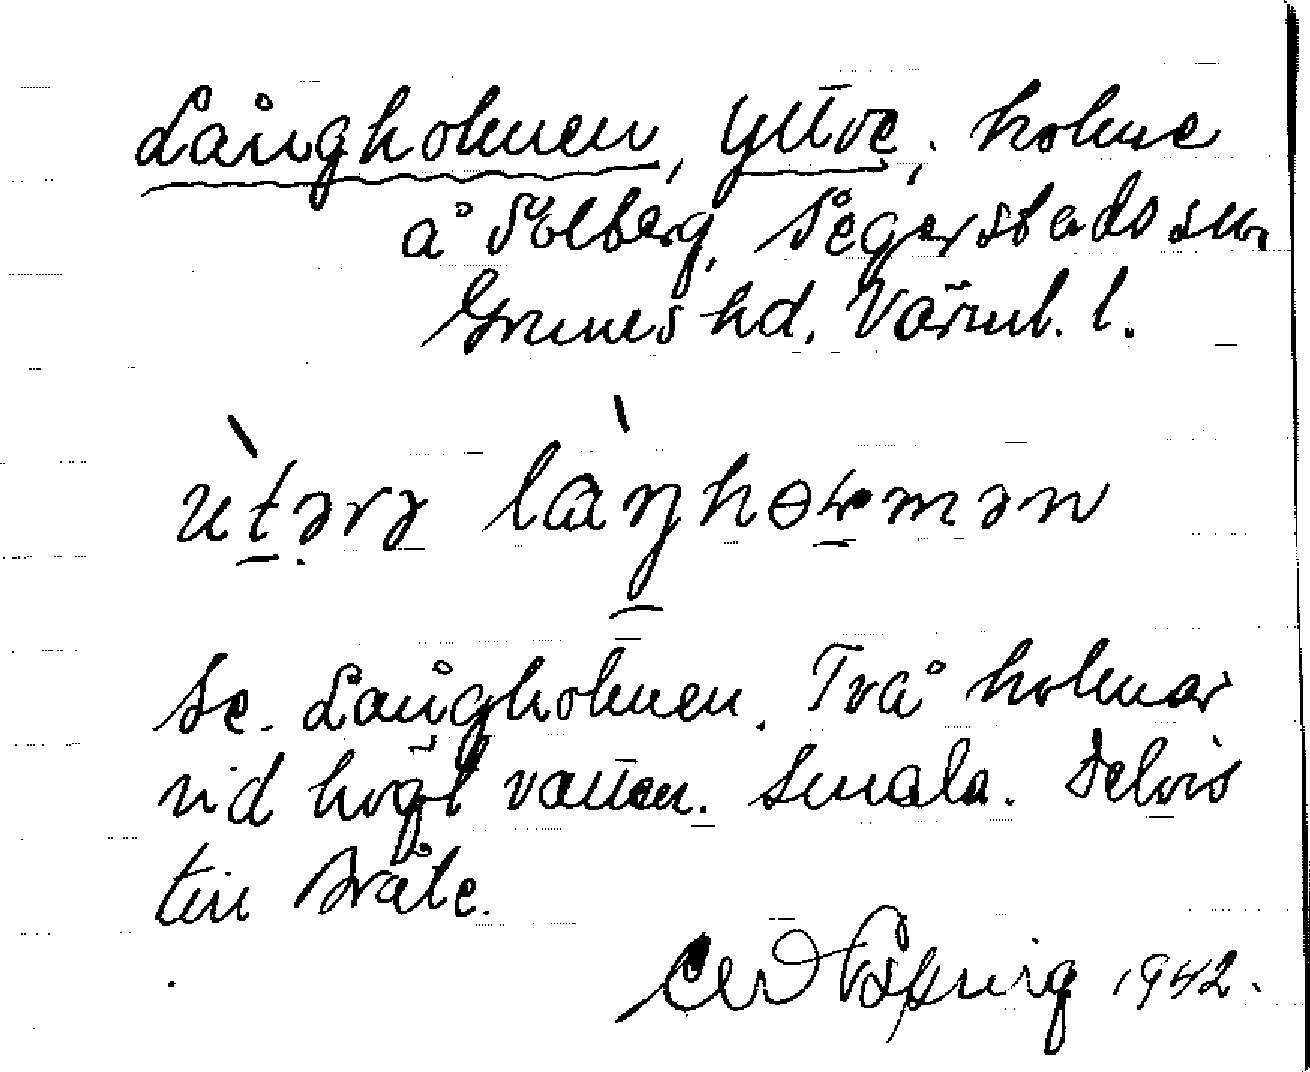 Långholmen, Yttre, holme
å Solberg, Segerstads sn
Grums hd, Värml. l.
ùtərə làŋhoɽmən
Se. Långholmen. Två holmar
vid högt vatten. Smala. Delvis
till Bråte.
1942.